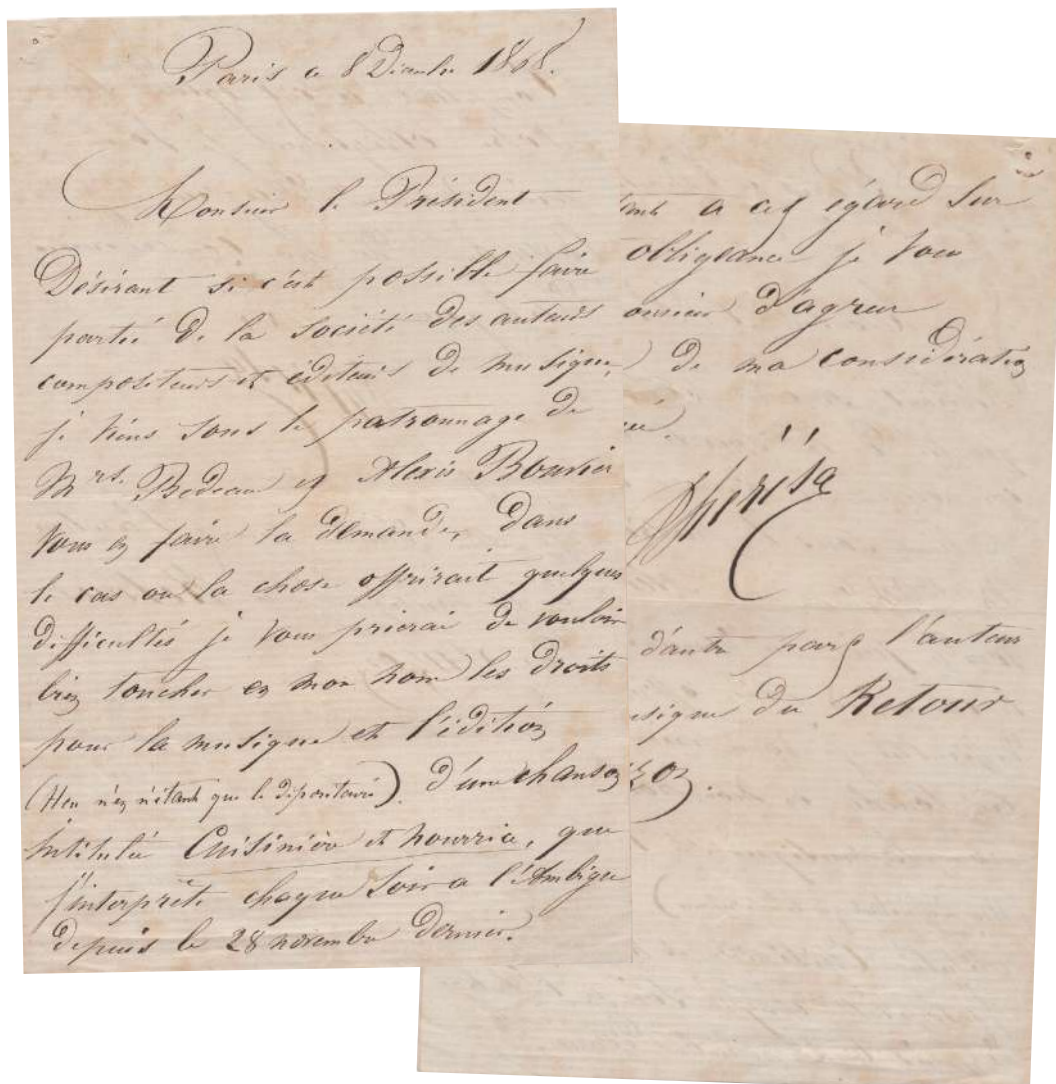 Paris ce 8 Décembre 1868.
Monsieur le Président
Désirant si c'est possible faire
partie de la société des auteurs
compositeurs et éditeurs de musique,
je viens sous le patronnage de
Mrs. Bedeau et Alexis Bouvier
vous en faire la demande, Dans
le cas ou la chose offrirait quelques
difficultés je vous prierai de vouloir
bien toucher en mon nom les droits
pour la musique et l'édition
(Heu n'en n'étant que le dépositaire). d'une chanson
intitulée Cuisinière et nourrice, que
j'interprète chaque soir a l'Ambigu
depuis le 28 novembre dernier.
tant a cet égard sur
obligeance je vous
onsieur d'agréer
de ma considération
ée.
Thérésa
d'autre part l'auteur
usique du Retour
zon.